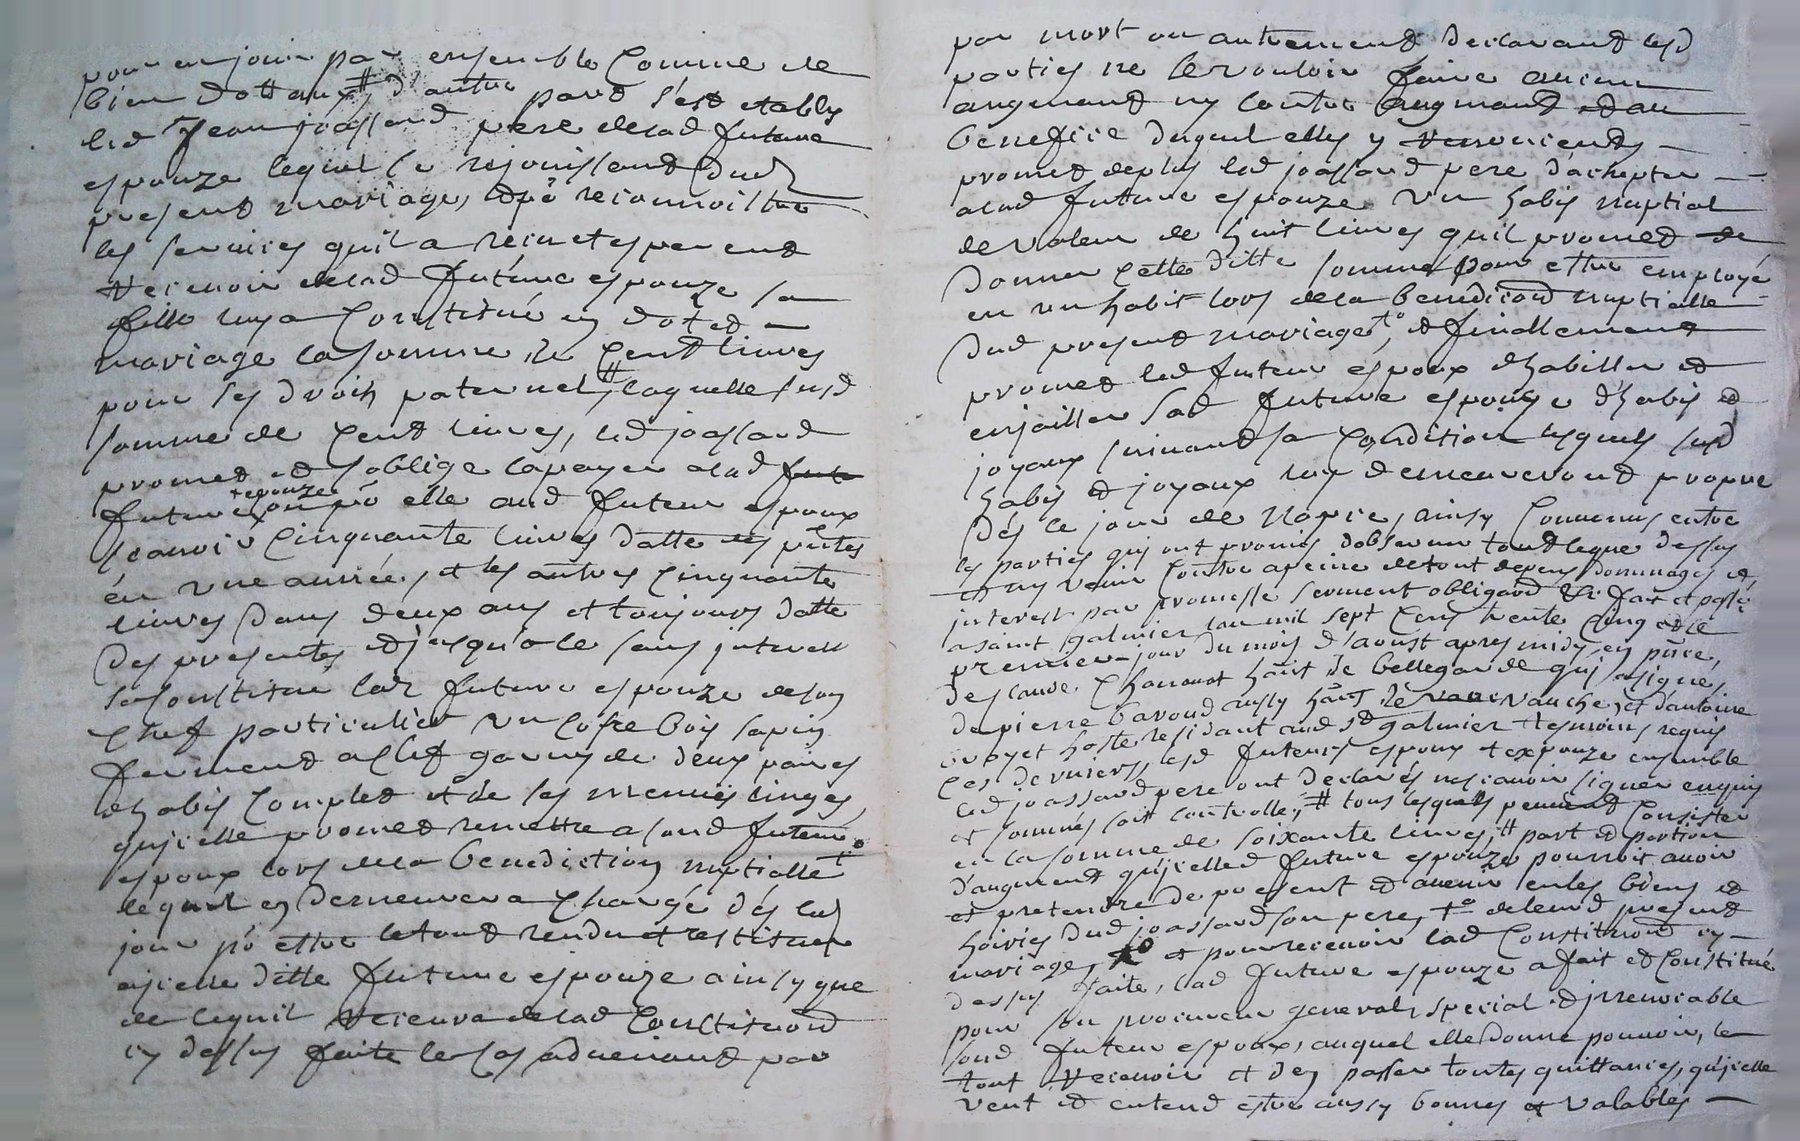 pour en jouir par ensemble Comme de
bien dottaux # d'autre part s'est etably
led Jean joassard pere delad future
espouze lequel se rejouissant dud
present mariage, et po reconnoistre
les services quil a recu et espere
recevoir delad future espouze sa
fille luy a Constitué en dot et
mariage la somme de Cent livres
pour ses droits paternels # laquelle susd
somme de Cent livres, led joassard
promet et soblige la payer alad futu
future espouze ou po elle aud futur espoux
scavoir Cinquante livres datte des pntes
en une année, et les autres Cinquante
livres dans deux ans et toujours datte
des presentes et jusqu'a le sans interest
sa Constitué lad future espouze de son
Chef particulier un Cofre bois sapin
ferment a Clef garny de deux paires
dhabis Complet et de ses menues linges
qu'icelle promet remettre a sond futur
espoux lors dela benediction nuptialle
lequel en demeurera Chargé dés led
jour po estre le tout rendu et restitué
a icelle ditte future espouze ainsy que
de cequil recevra delad Constitucion
cy dessus faite le Cas advenant par
par mort ou autrement declarant lesd
parties ne le vouloir faire aucun
augment ny Contre augment et au
benefice duquel elles y renoncent
promet deplus led joassard pere d'achepter
alad future espouze un habit nuptial
de valeur de huit livres quil promet de
donner Cette ditte somme pour estre employé
en un habit lors dela benediction nuptialle
dud present mariage, et finallement
promet led futur espoux dhabiller et
enjoailler sad future espouze d'habis et
joyaux suivant sa Condition lesquels susd
habis et joyaux luy demeureront propre
Dés le jour de Nopce, ainsy Convenu entre
les parties qui ont promis dobserver tout le que dessus
et ny venir Contre a peine de tout depens dommages et
interest par promesse serment obligaod &c fait et passé
a saint galmier lan mil sept Cens trente Cinq et le
premier jour du mois d'aoust apres midy en pnce,
de Claude Chanavat hant de bellegarde qui a signé,
de pierre baroud aussy hant de vauche, et d'antoine
voyet hoste residant aud st galmier tesmoins requis
Ces derniers, led futurs espoux et espouze ensemble
led joassard pere ont declarés ne scavoir signer enquis
et sommés soit Controlle, # tous lesquels peuvent Consister
en la somme de soixante livres, # part et portion
d'augment qu'icelled future espouze pourroit avoir
et pretendre de present et avenir en les biens et
hoiries dud joassard son pere, et delaud present
mariage, et pour recevoir lad Constitucion cy
dessus faite, lad future espouze a fait et Constitué
pour son procureur general, special et irrevocable
sond futur espoux, auquel elle donne pouvoir, le
tout recevoir et d'en passer toutes quittances, qu'icelle
veut et entend estre aussy bonnes et valables